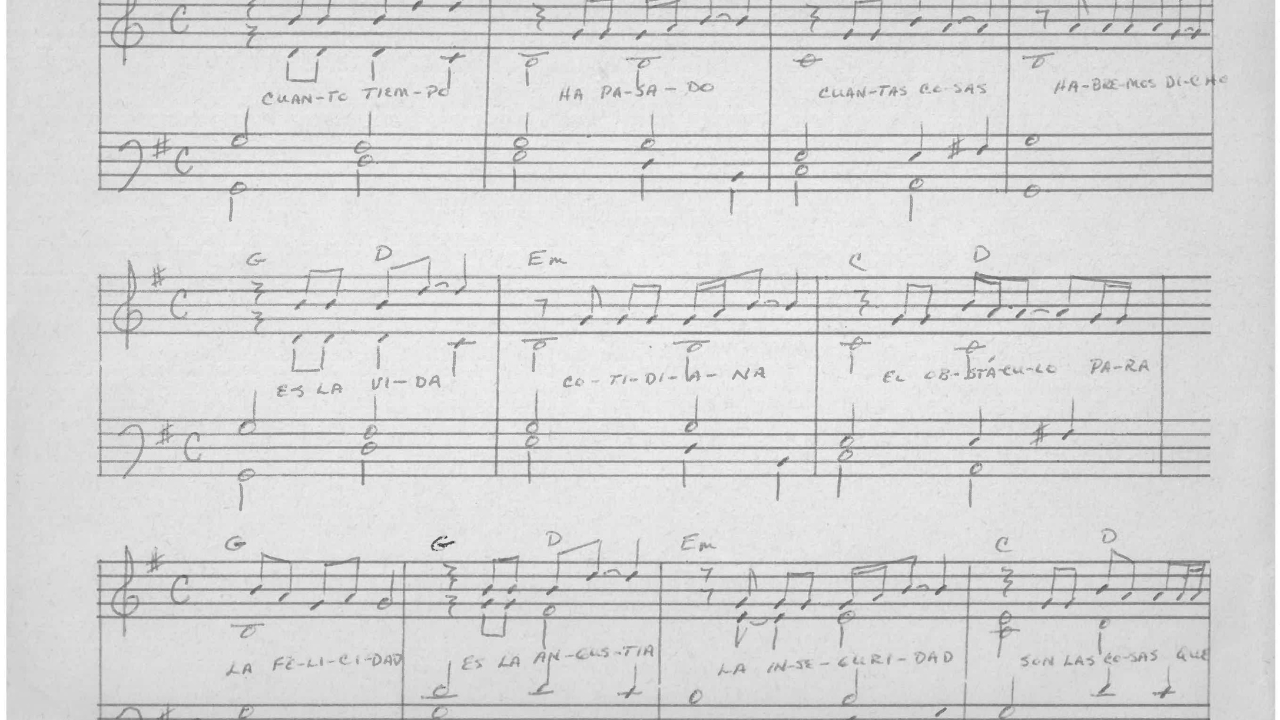 CUAN-TO TIEM-PO HA PA-SA-DO CUAN-TAS CO-SAS HA-BRE-MOS DI-CHO
G D Em C D
ES LA VI-DA CO-TI-DI-A-NA EL OB-STÁCU-LO PA-RA
G G D Em C D
LA FE-LI-CI-DAD ES LA AN-GUS-TIA LA IN-SE-GURI-DAD SON LAS CO-SAS QUE